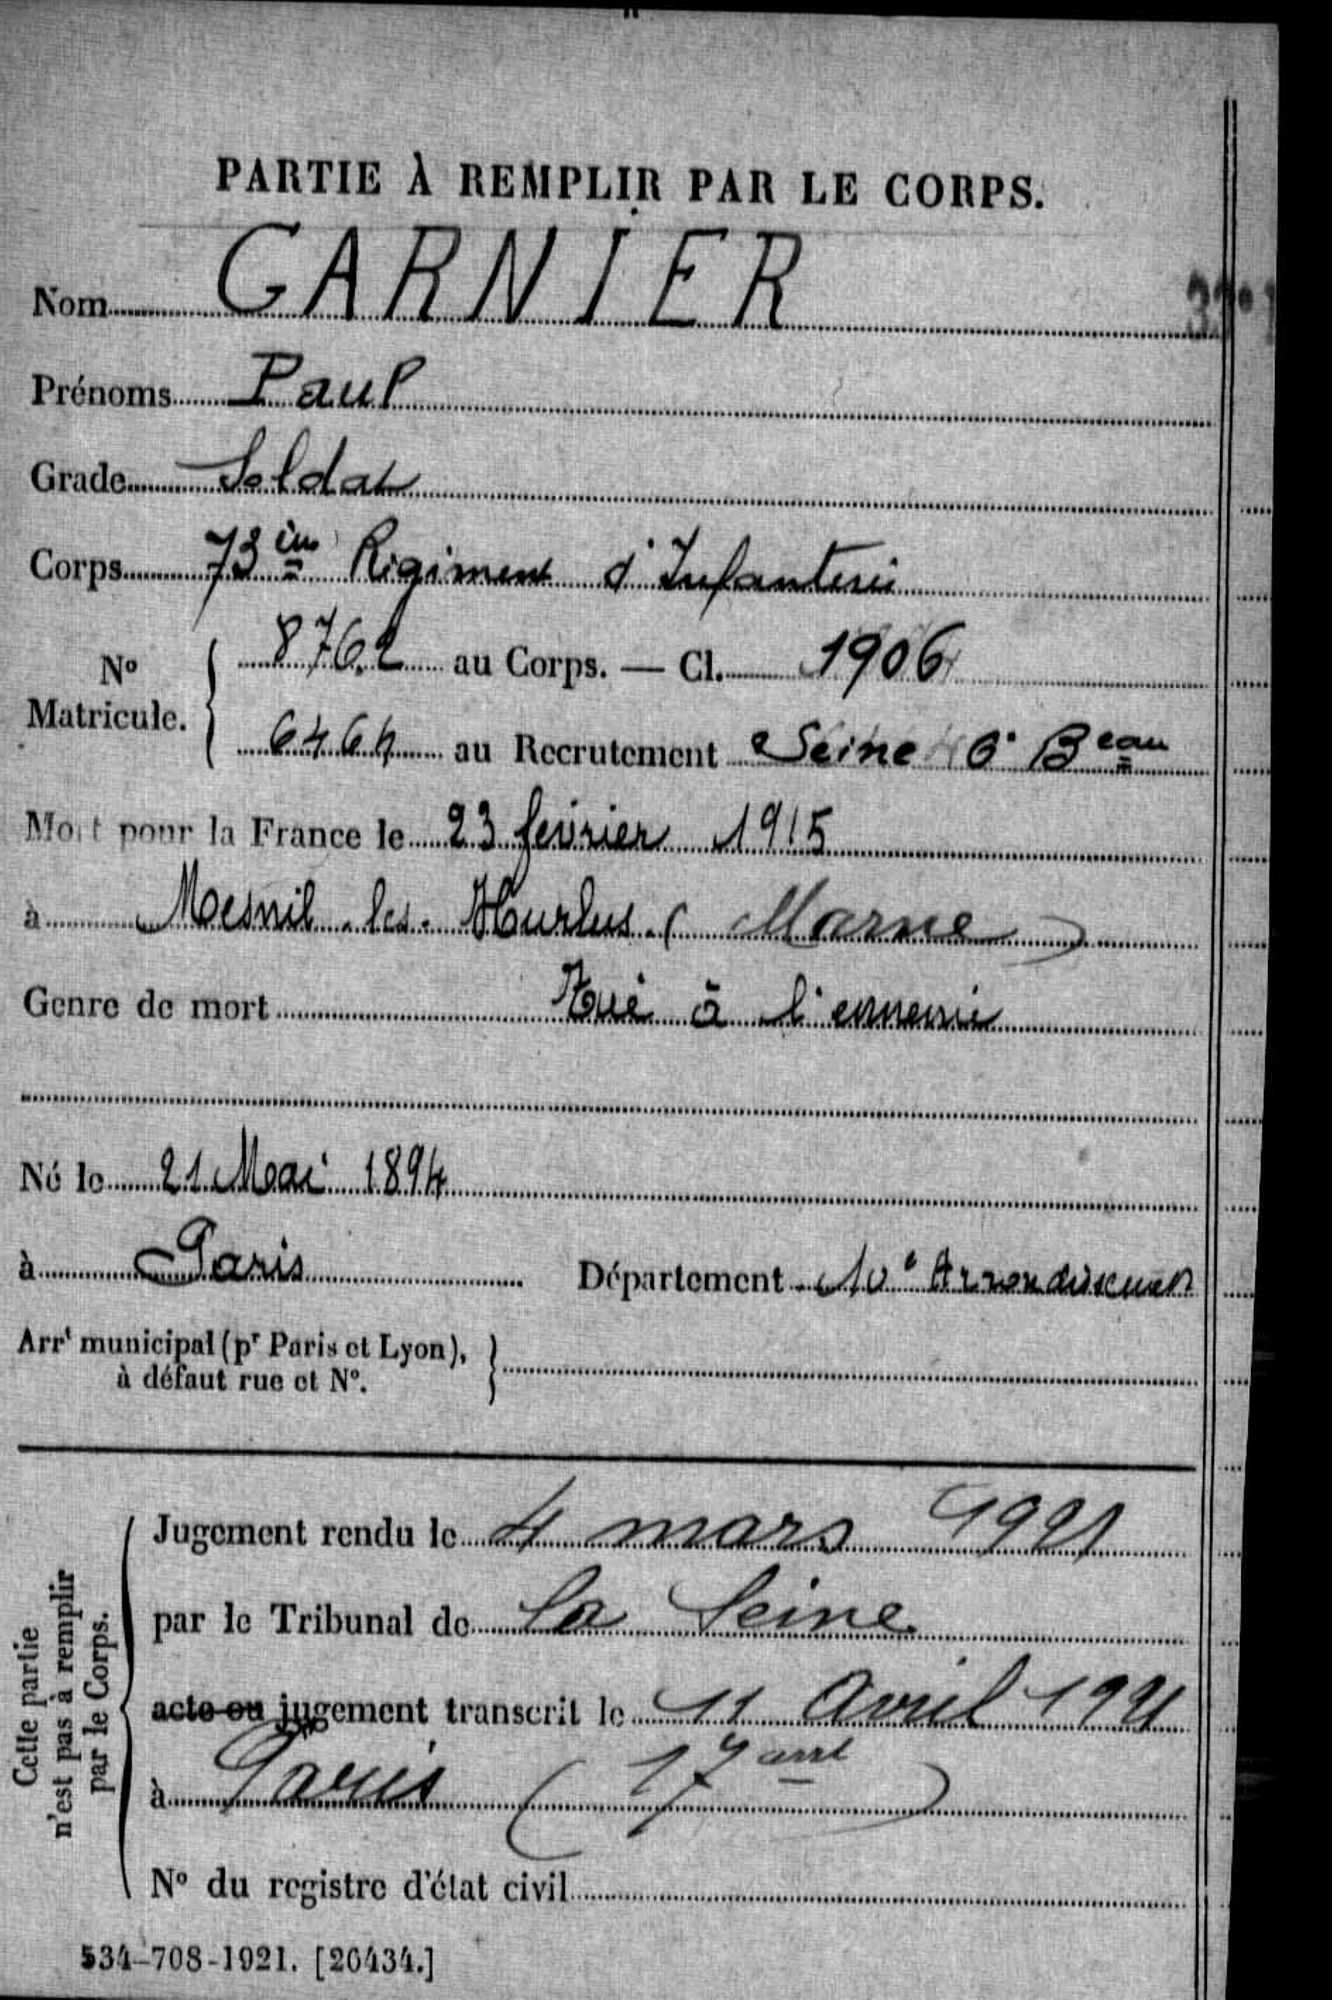 PARTIE À REMPLIR PAR LE CORPS.
Nom GARNIER
Prénoms Paul
Grade Soldat
Corps 73ème Régiment d'Infanterie
No Matricule. 8762 au Corps. — Cl. 1906
6464 au Recrutement Seine 6e Beau
Mort pour la France le 23 février 1915
à Mesnil-les-Hurlus (Marne)
Genre de mort Tué à l'ennemi
Né le 21 Mai 1894
à Paris Département 10e Arrondissement
Arrt municipal (pr Paris et Lyon),
à défaut rue et No.
Cette partie
n'est pas à remplir
par le Corps.
Jugement rendu le 4 mars 1921
par le Tribunal de la Seine
acte ou jugement transcrit le 11 Avril 1921
à Paris (17 arrt)
No du registre d'état civil
534-708-1921. [26434.]